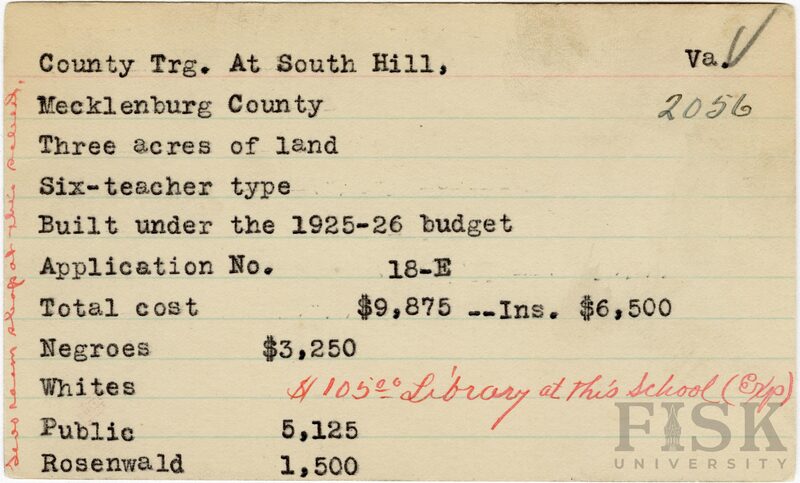 County Trg. At South Hill, Va.
2056
Mecklenburg County
Three acres of land
Six-teacher type
Built under the 1925-26 budget
Application No. 18-E
Total cost $9,875 --Ins. $6,500
Negroes $3,250
Whites
$105.00 Library at this School (Exp)
Public 5,125
Rosenwald 1,500
Two room shop at this school.
FISK
UNIVERSITY